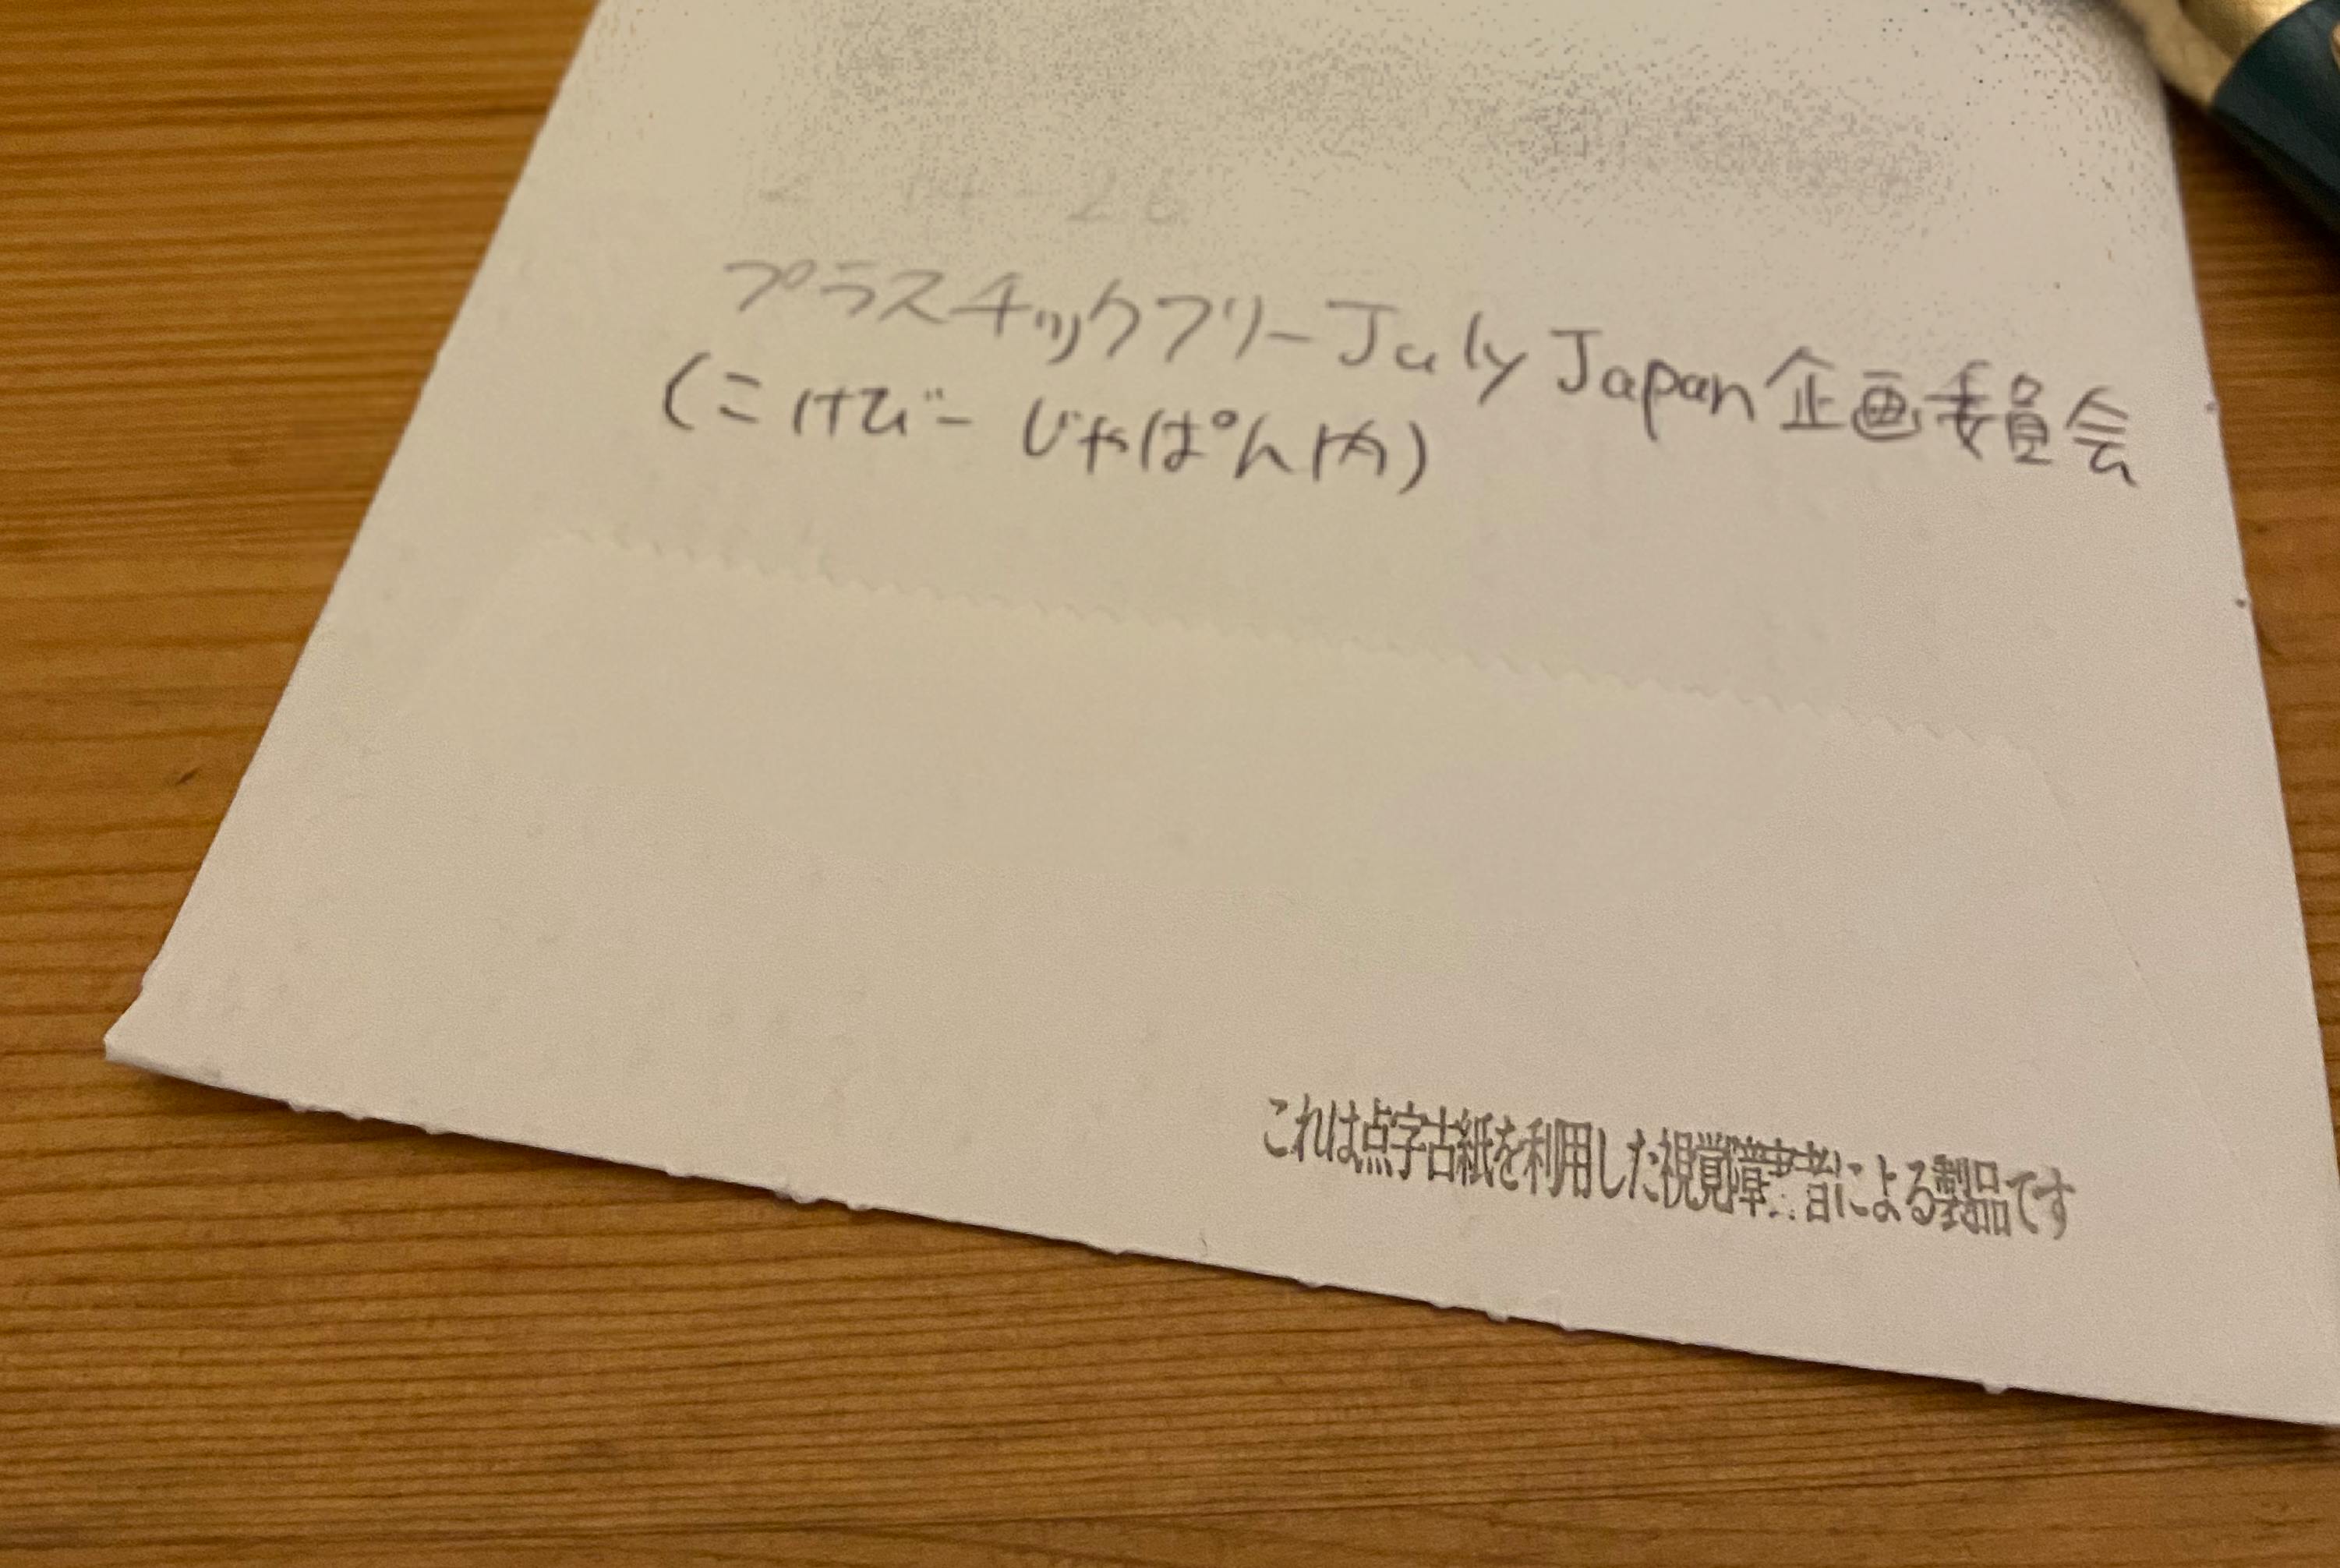 プラスチックフリーJuly Japan企画委員会
(こけびーじゃぱん内)
これは点字古紙を利用した視覚障害者による製品です